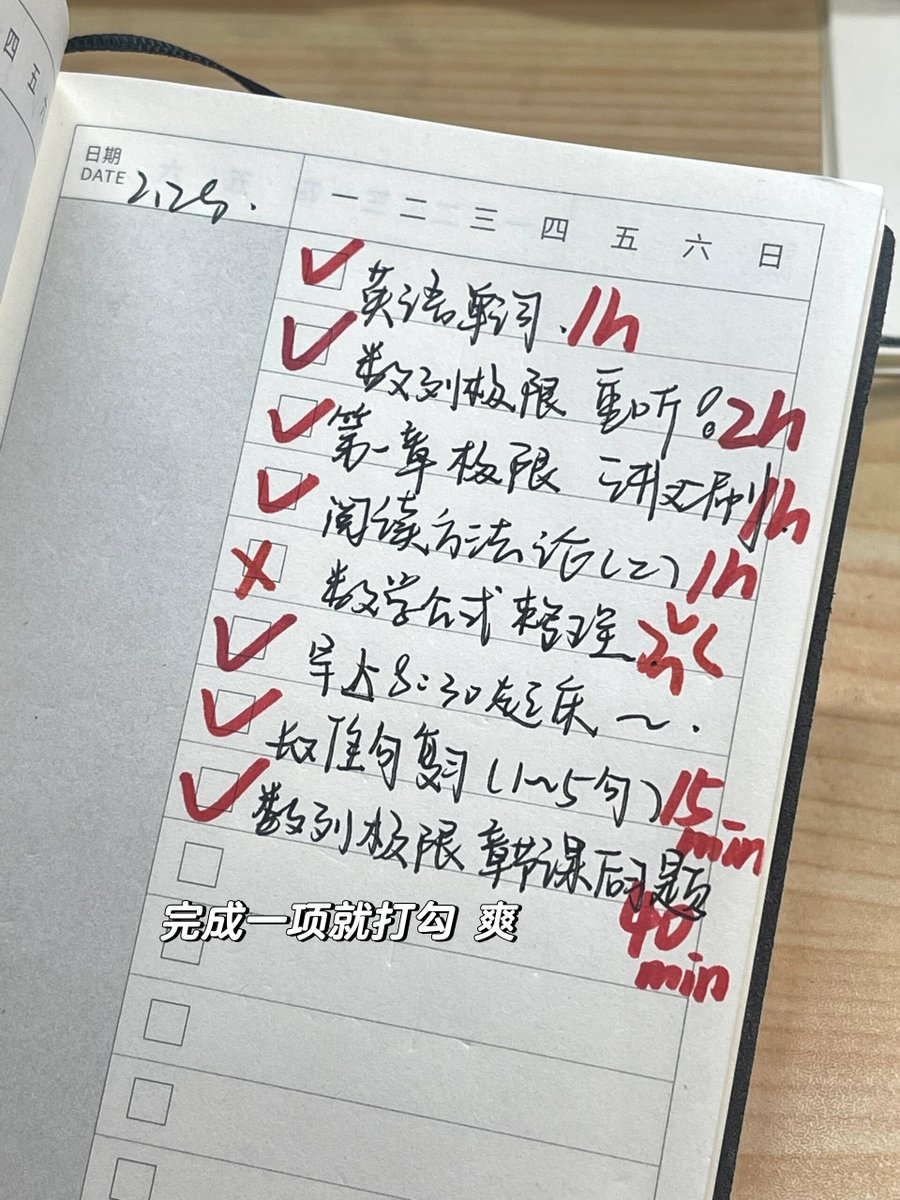 四 五 六
日期
DATE 2.25.
一 二 三 四 五 六 日
英语单词. 1h
数列极限 重听! 2h
第一章极限 讲义刷 1h
阅读方法论(二) 1h
数学公式整理.
早上8:30起床~.
长难句复习(1~5句) 15 min
数列极限章节课后习题 40 min
完成一项就打勾 爽